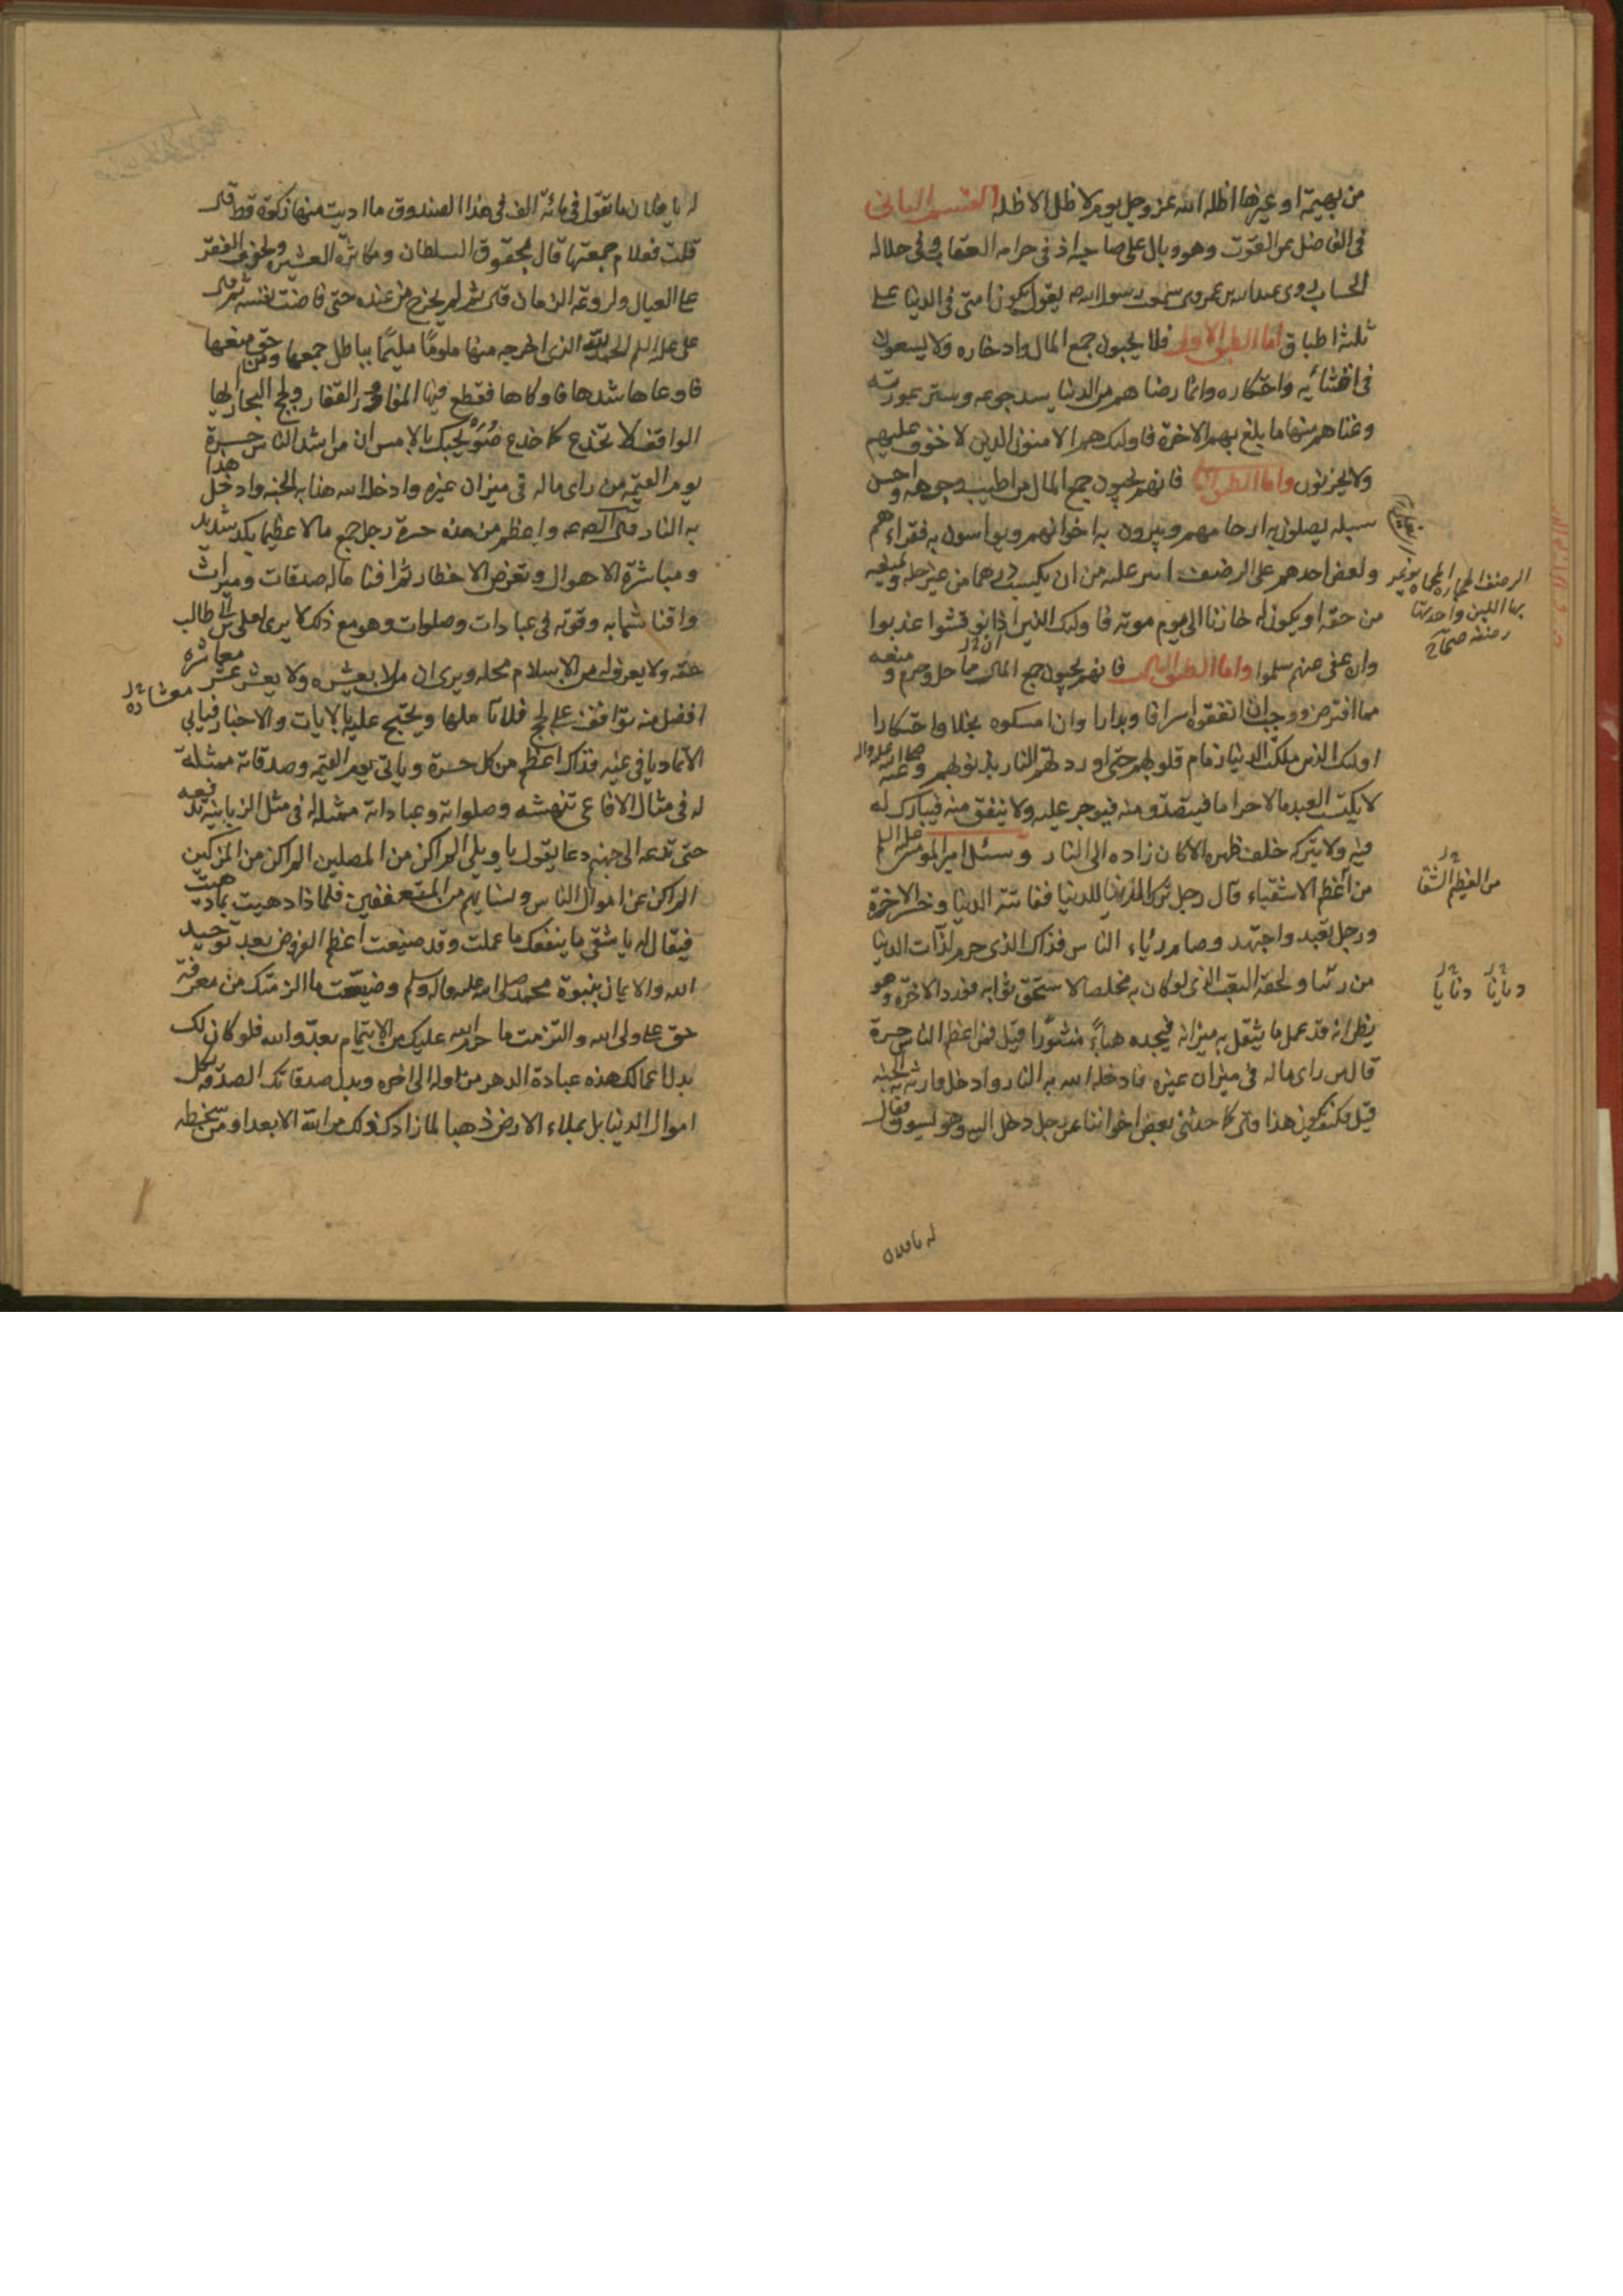 من بهيمة او غيرها اظله الله عز وجل يوم لا ظل الا ظله القسم الثانى
فى الفاضل عن القوت وهو وبال على صاحبه اذ فى حرامه العقاب وفى حلاله
الحساب روى عبدالله بن عمر قال سمعت رسول الله ص يقول يكون امتى فى الدنيا على
ثلثة اطباق اما الطبق الاول فلا يحبون جمع المال وادخاره ولا يسعون
فى اقتنائه واحتكاره وانما رضاهم من الدنيا سد جوعه وستر عورته
وغناهم منها ما بلغ بهم الاخرة فاولئك هم الامنون الذين لا خوف عليهم
ولا يحزنون واما الطبق الثانى فانهم يحبون جمع المال من اطيب وجوهه واحسن
سبله يصلون به ارحامهم ويبرون به اخوانهم ويواسون به فقراءهم
ولعض احدهم على الرضف ايسر عليه من ان يكسب درهما من غير حله او يمنعه
من حقه او يكون له خازنا الى يوم موته فاولئك الذين ان نوقشوا عذبوا
وان عفى عنهم سلموا واما الطبق الثالث فانهم يحبون جمع المال مما حل وحرم ومنعه
مما افترض ووجب ان انفقوه اسرافا وبدارا وان امسكوه بخلا واحتكارا
اولئك الذين ملكت الدنيا زمام قلوبهم حتى اوردتهم النار بذنوبهم وعنه صلى الله عليه واله
لا يكتسب العبد مالا حراما فيتصدق منه فيوجر عليه ولا ينفق منه فيبارك له
فيه ولا يتركه خلف ظهره الا كان زاده الى النار وسئل امير المؤمنين
من اعظم الاشقياء قال رجل ترك الدنيا للدنيا ففاتته الدنيا وخسر الاخرة
ورجل تعبد واجتهد وصام رئاء الناس فذاك الذى حرم لذات الدنيا
من دنيا ولحقه التعب الذى لو كان به مخلصا لاستحق ثوابه فورد الاخرة وهو
يظن انه قد عمل ما يثقل به ميزانه فيجده هباء منثورا قيل فمن اعظم الناس حسرة
قال من راى ماله فى ميزان غيره فادخله الله به النار وادخل وارثه به الجنة
قيل فكيف يكون هذا قال كما حدثنى بعض اخواننا عن رجل دخل اليه وهو يسوق فقال
له يا فلان
الرضف الحجارة المحماة يوغر
بها اللبن واحدتها
رضفة صحاح
من العظيم الشقا
دنيانا دنيانا
له يا فلان ما تقول فى مائة الف فى هذا الصندوق ما اديت منها زكوة قط قال
قلت فعلام جمعتها قال لحقوق السلطان ومكاثرة العشيرة ولخوف الفقر
على العيال ولروعة الزمان قال ثم لم يخرج من عنده حتى فاضت نفسه ثم قال
على عليه السلام الحمد لله الذى اخرجه منها ملوما مليما بباطل جمعها ومن حق منعها
فاوعاها شدها فاوكاها فقطع فيها المفاوز القفار ولجج البحار ايها
الواقف لا تخدع كما خدع صويحبك بالامس ان من اشد الناس حسرة
يوم القيمة من راى ماله فى ميزان غيره وادخل الله هذا به الجنة وادخل هذا
به النار قال الصادق ع واعظم من هذه حسرة رجل جمع مالا عظيما بكد شديد
ومباشرة الاهوال وتعرض الاخطار ثم افنا ماله صدقات وميراث
وافنا شبابه وقوته فى عبادات وصلوات وهو مع ذلك لا يرى لعلى بن ابى طالب
حقه ولا يعرف له من الاسلام محله ويرى ان من لا بعشره ولا بعشر عشر معشاره
افضل منه تواقف على الحجج فلا تأملها ويحتج عليه بالايات والاخبار فيأبى
الا تماديا فى غيه فذاك اعظم من كل حسرة وياتى يوم القيمة وصدقاته ممثلة
له فى مثال الافاعى تنهشه وصلواته وعباداته ممثلة له فى مثل الزبانية تدفعه
حتى تدعه الى جهنم دعا يقول يا ويلى الم اكن من المصلين الم اكن من المزكين
الم اكن عن اموال الناس ونسائهم من المتعففين فلماذا دهيت بما دهيت
فيقال له يا شقى ما ينفعك ما عملت وقد ضيعت اعظم الفروض بعد توحيد
الله والايمان بنبوة محمد صلى الله عليه واله وسلم وضيعت ما الزمتك من معرفة
حق على ولى الله والتزمت ما حرم الله عليك من الايتمام بعدو الله فلو كان لك
بدل اعمالك هذه عبادة الدهر من اوله الى اخره وبدل صدقاتك الصدقة بكل
اموال الدنيا بل بملاء الارض ذهبا لما زادك ذلك من الله الا بعدا ومن سخطه
معشاره